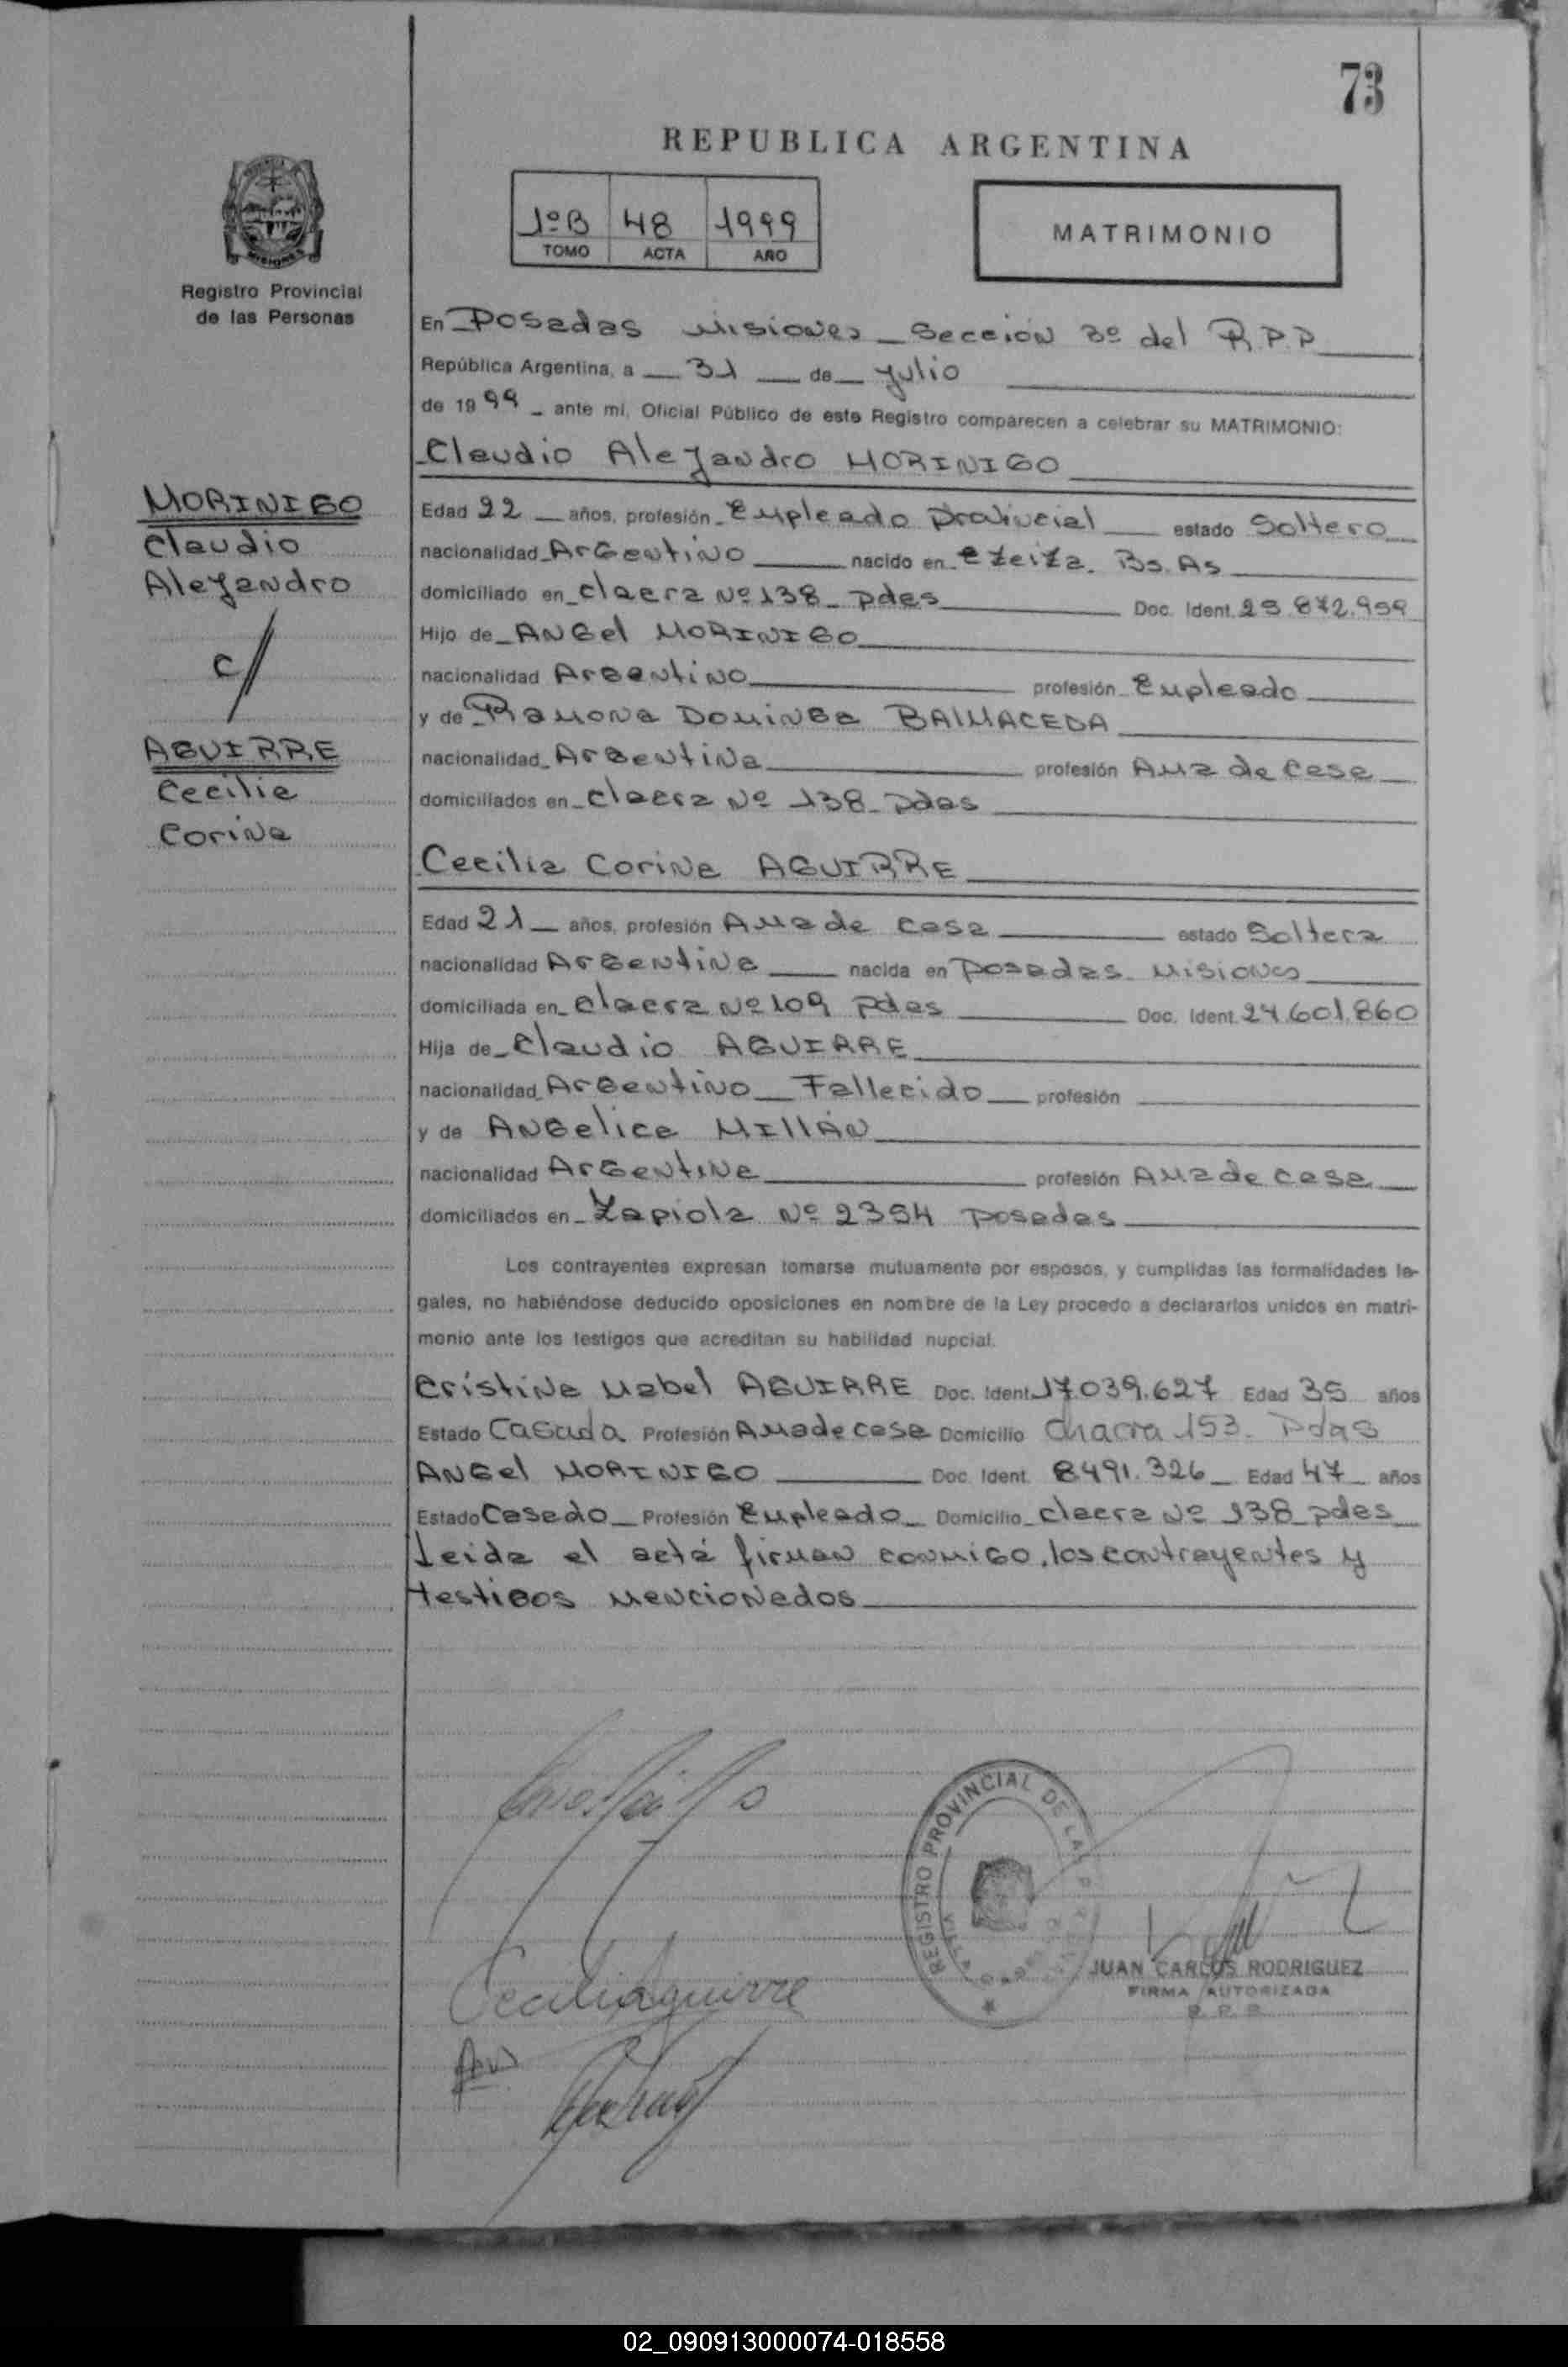 73
REPUBLICA ARGENTINA
1º B 48 1999
TOMO ACTA AÑO
MATRIMONIO
MISIONES
Registro Provincial
de las Personas
En Posadas Misiones Sección 3º del R.P.P
República Argentina, a 31 de Julio
de 1999 ante mí, Oficial Público de este Registro comparecen a celebrar su MATRIMONIO:
Claudio Alejandro MORINIGO
MORINIGO
Claudio
Alejandro
c/
AGUIRRE
Cecilia
Corina
Edad 22 años, profesión Empleado Provincial estado Soltero
nacionalidad Argentino nacido en Ezeiza. Bs. As
domiciliado en chacra Nº 138 Pdas Doc. Ident. 25.872.959
Hijo de ANGel MORINIGO
nacionalidad Argentino profesión Empleado
y de Ramona Dominga BAlMACEDA
nacionalidad Argentina profesión Ama de casa
domiciliados en chacra Nº 138 Pdas
Cecilia Corina AGUIRRE
Edad 21 años, profesión Ama de casa estado Soltera
nacionalidad Argentina nacida en Posadas. Misiones
domiciliada en chacra Nº 109 Pdas Doc. Ident. 24.601.860
Hija de Claudio AGUIRRE
nacionalidad Argentino Fallecido profesión
y de ANGelica MIllÁN
nacionalidad Argentina profesión Ama de casa
domiciliados en Zapiola Nº 2354 Posadas
Los contrayentes expresan tomarse mutuamente por esposos, y cumplidas las formalidades le-
gales, no habiéndose deducido oposiciones en nombre de la Ley procedo a declararlos unidos en matri-
monio ante los testigos que acreditan su habilidad nupcial.
Cristina Mabel AGUIRRE Doc. Ident. 17.039.627 Edad 35 años
Estado Casada Profesión Ama de casa Domicilio Chacra 153. Pdas
ANGel MORINIGO Doc. Ident. 8491.326 Edad 47 años
Estado Casado Profesión Empleado Domicilio chacra Nº 138 Pdas
Leida el acta firman conmigo, los contrayentes y
testigos mencionados
REGISTRO PROVINCIAL DE LAS
Cecilia Aguirre
JUAN CARLOS RODRIGUEZ
FIRMA AUTORIZADA
R. P. P.
02_090913000074-018558